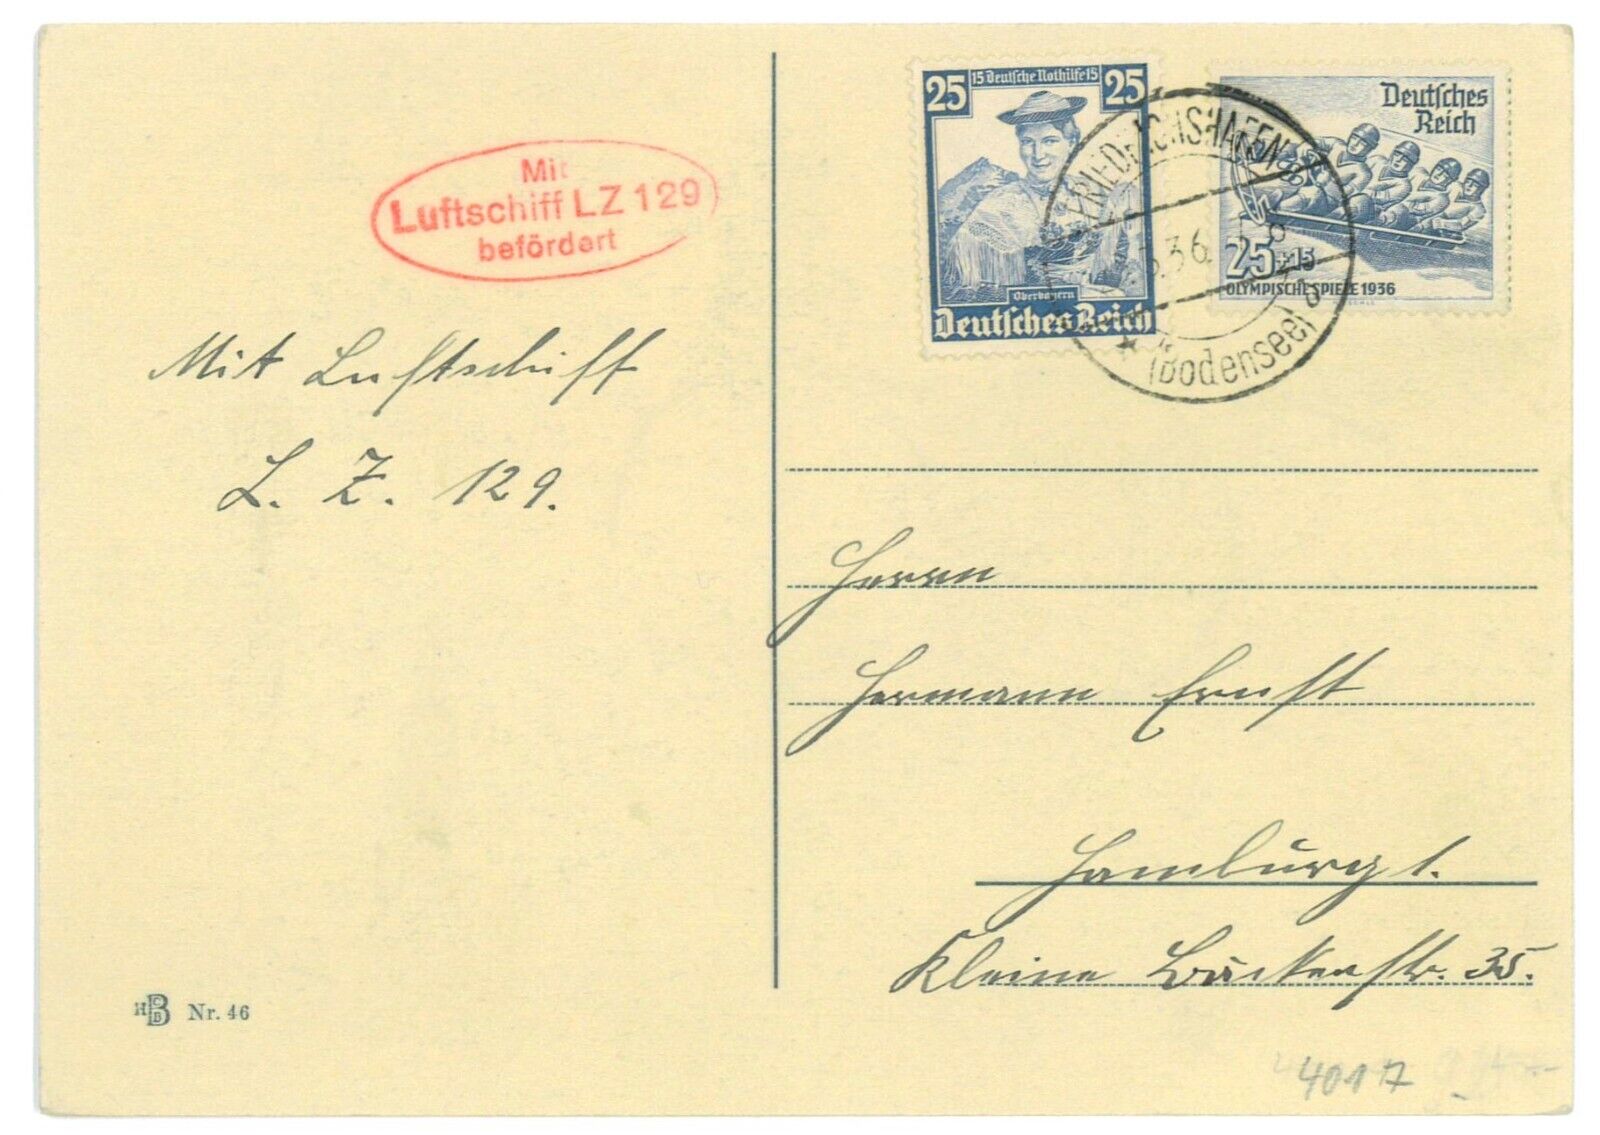 Mit
Luftschiff LZ 129
befördert
25 15 Deutsche Nothilfe 15 25
Oberbayern
Deutsches Reich
Deutsches
Reich
25+15
OLYMPISCHE SPIELE 1936
FRIEDRICHSHAFEN
36
(Bodensee)
Mit Luftschiff
L. Z. 129.
Herrn
Hermann Ernst
Hamburg 1.
Kleine Bäckerstr. 35.
HB Nr. 46
4017